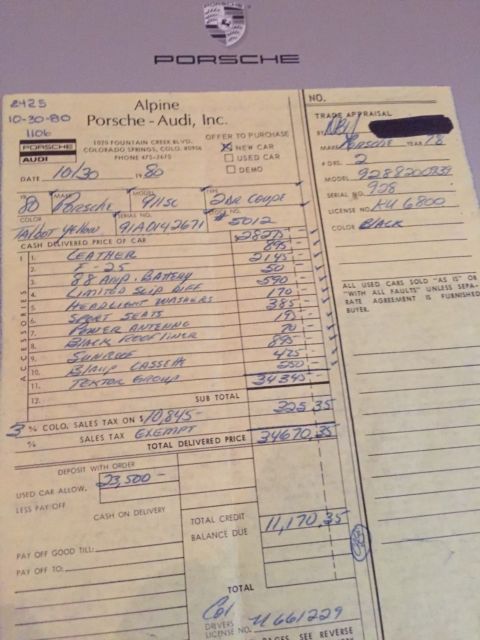 PORSCHE
2425
10-30-80
1106
Alpine
Porsche - Audi, Inc.
PORSCHE
AUDI
1029 FOUNTAIN CREEK BLVD.
COLORADO SPRINGS, COLO. 80906
PHONE 475-2675
OFFER TO PURCHASE
X NEW CAR
USED CAR
DEMO
DATE 10/30 1980
1980 MAKE Porsche MODEL 911SC TYPE 2DR COUPE
COLOR Talbot Yellow SERIAL NO. 91A0142671 5012
CASH DELIVERED PRICE OF CAR
ACCESSORIES
1. LEATHER 895
2. 2145
3. 88 Amp. Battery 50
4. LIMITED SLIP DIFF 590
5. HEADLIGHT WASHERS 170
6. SPORT SEATS 385
7. POWER ANTENNA
8. BLACK ROOFLINER 70
9. SUNROOF 895
10. CASSETTE 425
11. GROUP
12.
SUB TOTAL 34345
3 % COLO. SALES TAX ON $10,845- 325.35
% SALES TAX EXEMPT
TOTAL DELIVERED PRICE 34670.35
DEPOSIT WITH ORDER
USED CAR ALLOW. 23,500-
LESS PAY/OFF
CASH ON DELIVERY
TOTAL CREDIT
BALANCE DUE 11,170.35
PAY OFF GOOD TILL:
PAY OFF TO:
TOTAL
DRIVERS LICENSE NO. Col
SEE REVERSE
NO.
TRADE APPRAISAL
BY
MAKE Porsche YEAR 78
# DRS. 2
MODEL
SERIAL NO. 928
LICENSE NO. 6800
COLOR BLACK
ALL USED CARS SOLD "AS IS" OR
"WITH ALL FAULTS" UNLESS SEPA-
RATE AGREEMENT IS FURNISHED
BUYER.